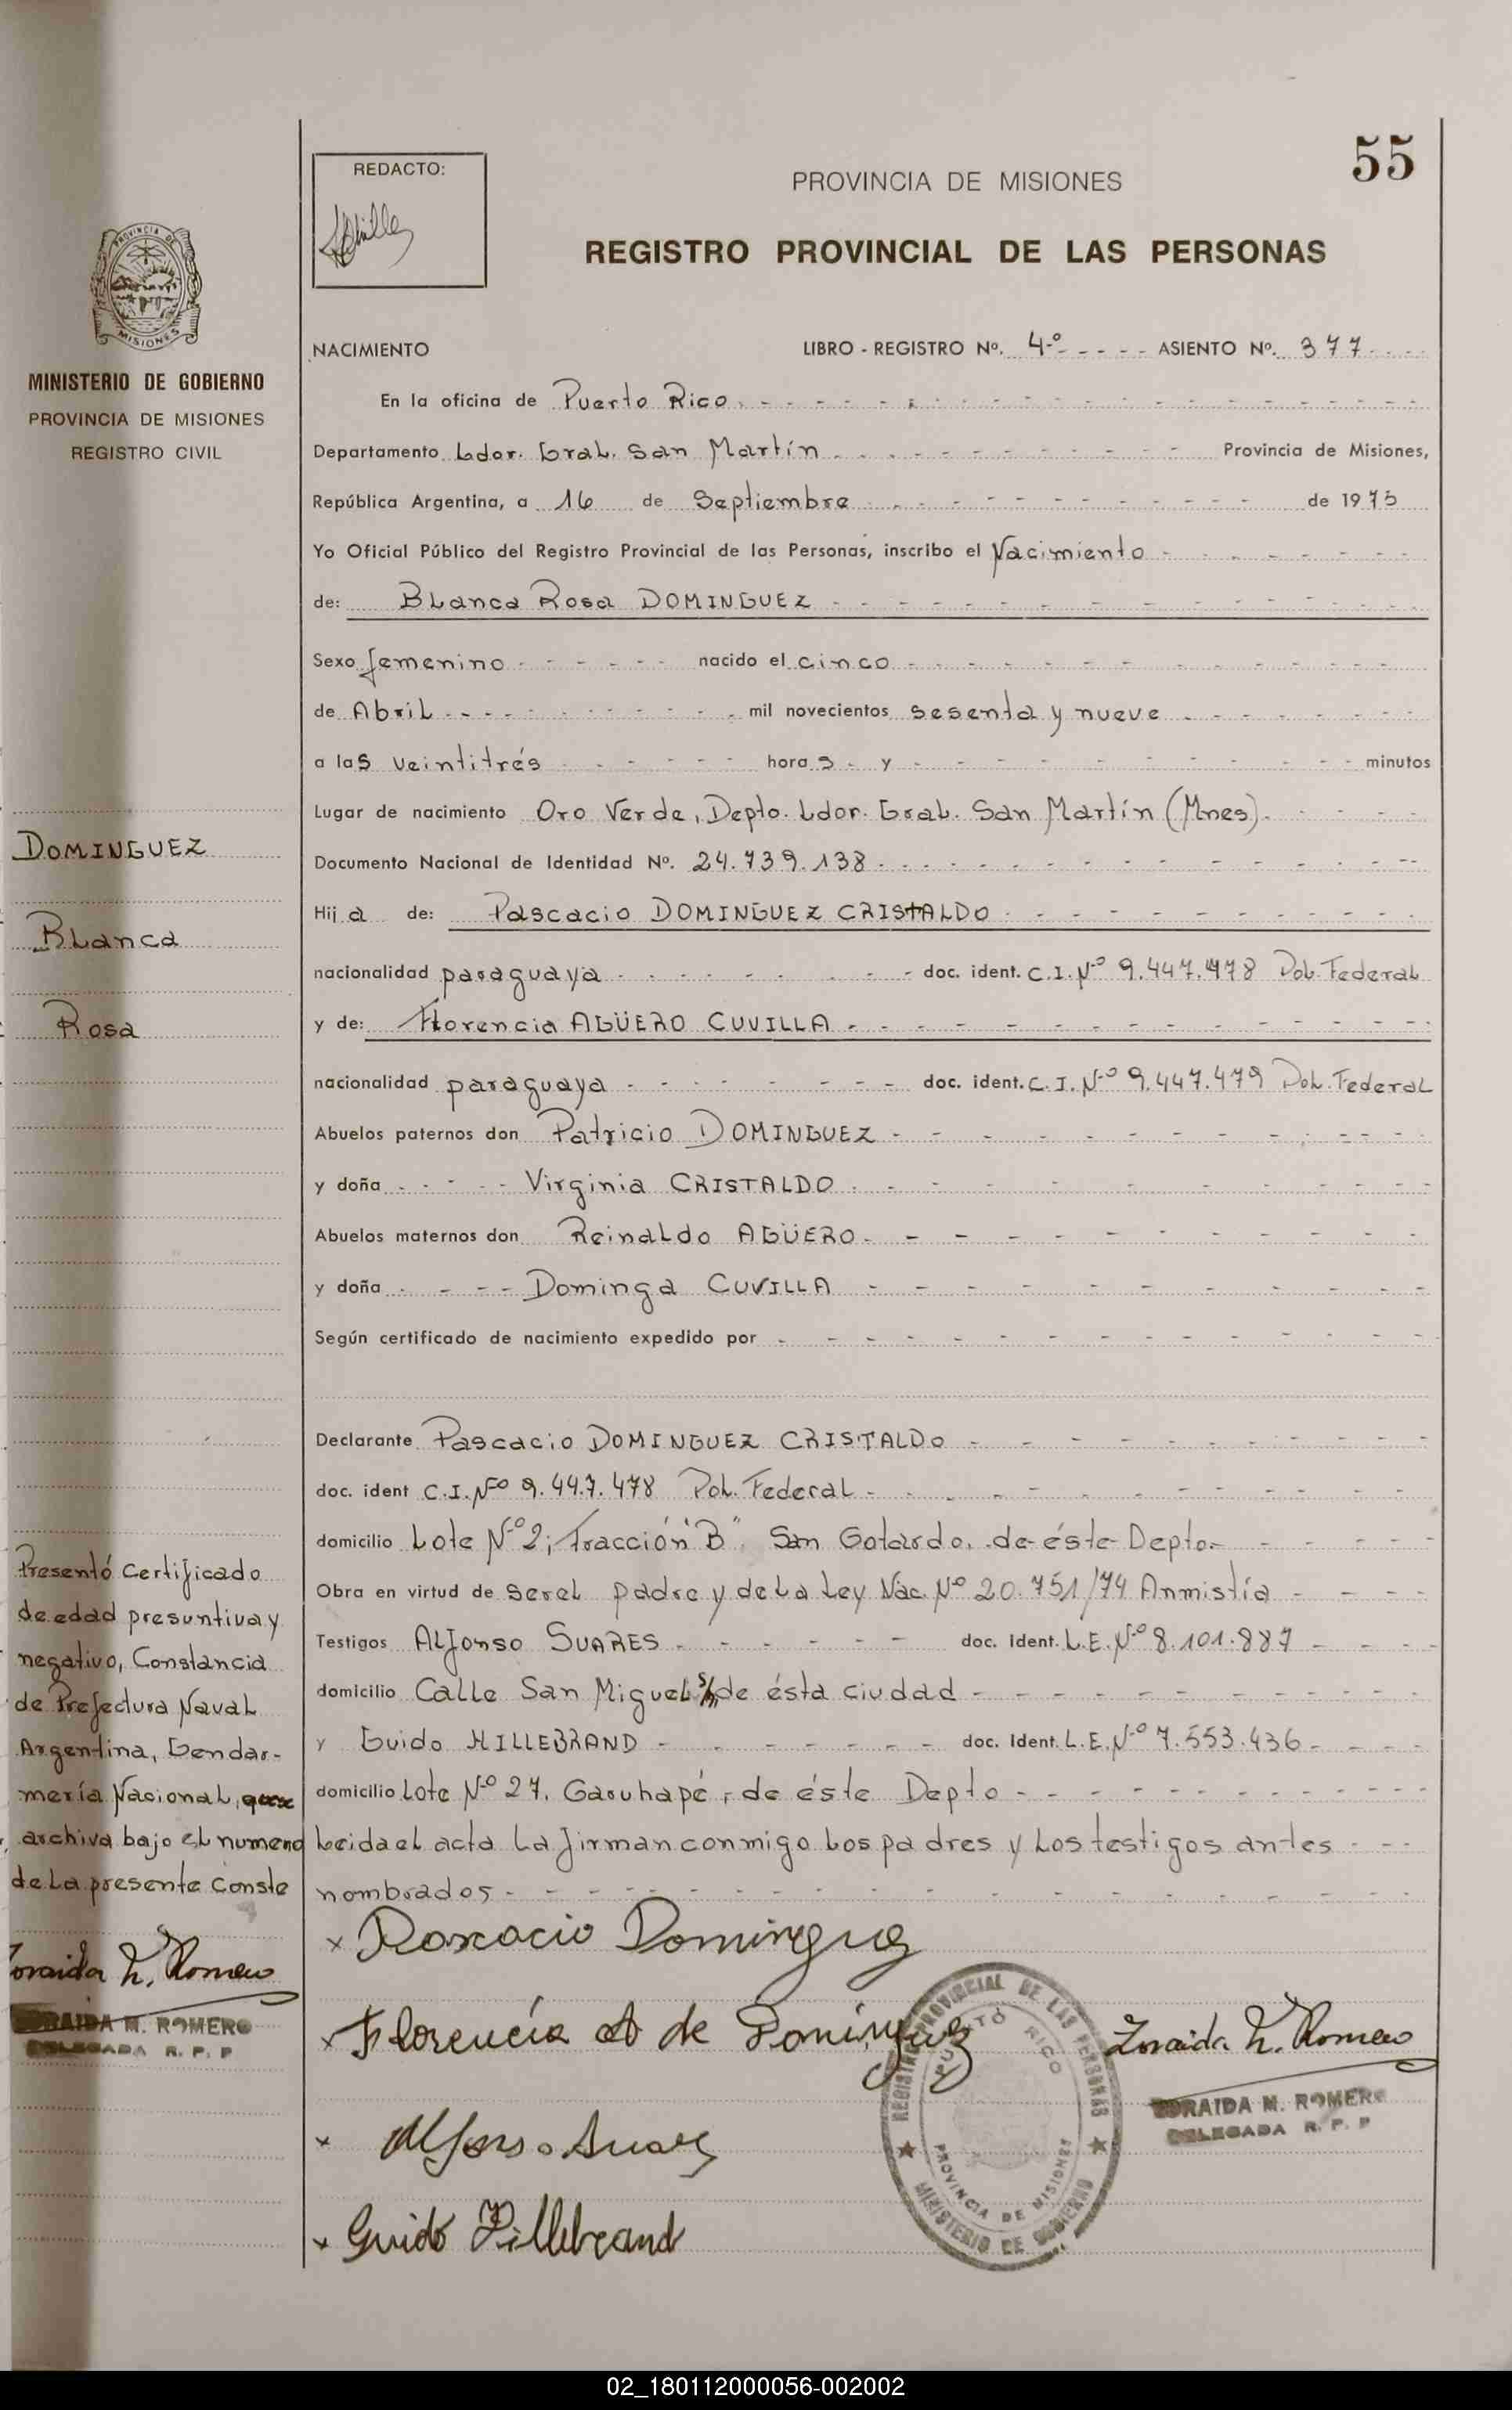 55
REDACTO:
PROVINCIA DE MISIONES
REGISTRO PROVINCIAL DE LAS PERSONAS
PROVINCIA DE
MISIONES
MINISTERIO DE GOBIERNO
PROVINCIA DE MISIONES
REGISTRO CIVIL
NACIMIENTO LIBRO - REGISTRO Nº. 4º ASIENTO Nº. 377
En la oficina de Puerto Rico
Departamento Ldor. Gral. San Martín Provincia de Misiones,
República Argentina, a 16 de Septiembre de 1975
Yo Oficial Público del Registro Provincial de las Personas, inscribo el Nacimiento
de: Blanca Rosa DOMINGUEZ
Sexo femenino nacido el cinco
de Abril mil novecientos sesenta y nueve
a las veintitrés horas y minutos
Lugar de nacimiento Oro Verde, Depto. Ldor. Gral. San Martín (Mnes).
Documento Nacional de Identidad Nº. 24.739.138
Hija de: Pascacio DOMINGUEZ CRISTALDO
nacionalidad paraguaya doc. ident. C.I. Nº 9.447.478 Pol. Federal
y de: Florencia AGÜERO CUVILLA
nacionalidad paraguaya doc. ident. C.I. Nº 9.447.479 Pol. Federal
Abuelos paternos don Patricio DOMINGUEZ
y doña Virginia CRISTALDO
Abuelos maternos don Reinaldo AGÜERO
y doña Dominga CUVILLA
Según certificado de nacimiento expedido por
Declarante Pascacio DOMINGUEZ CRISTALDO
doc. ident C.I. Nº 9.447.478 Pol. Federal
domicilio Lote Nº 2; fracción "B" San Gotardo, de éste Depto.
Obra en virtud de ser el padre y de la Ley Nac. Nº 20.751/74 Anmistía
Testigos Alfonso SUARES doc. Ident. L.E. Nº 8.101.887
domicilio Calle San Miguel s/n de ésta ciudad
y Guido HILLEBRAND doc. Ident. L.E. Nº 7.553.436
domicilio Lote Nº 27, Garuhapé, de éste Depto
Leida el acta la firman conmigo los padres y los testigos antes
nombrados
DOMINGUEZ
Blanca
Rosa
Presentó Certificado
de edad presuntiva y
negativo, Constancia
de Prefectura Naval
Argentina, Gendar-
mería Nacional, que
archiva bajo el numero
de la presente Conste
Zoraida M. Romero
ZORAIDA M. ROMERO
DELEGADA R. P. P
x Pascacio Dominguez
x Florencia A de Dominguez
x Alfonso Suares
x Guido Hillebrand
REGISTRO PROVINCIAL DE LAS PERSONAS
PUERTO RICO
PROVINCIA DE MISIONES
MINISTERIO DE GOBIERNO
Zoraida M. Romero
ZORAIDA M. ROMERO
DELEGADA R. P. P
02_180112000056-002002